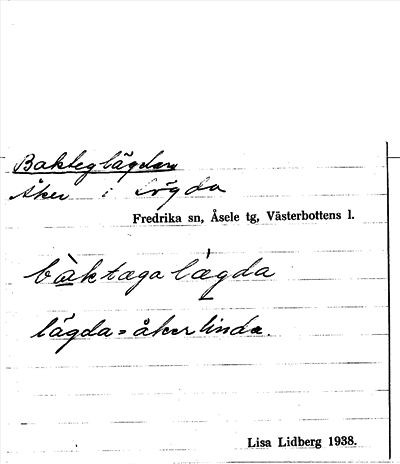 Bakteglägdan
Åker i Lögda
Fredrika sn, Åsele tg, Västerbottens l.
bàktæga lægda
lägda = åkerlinda.
Lisa Lidberg 1938.